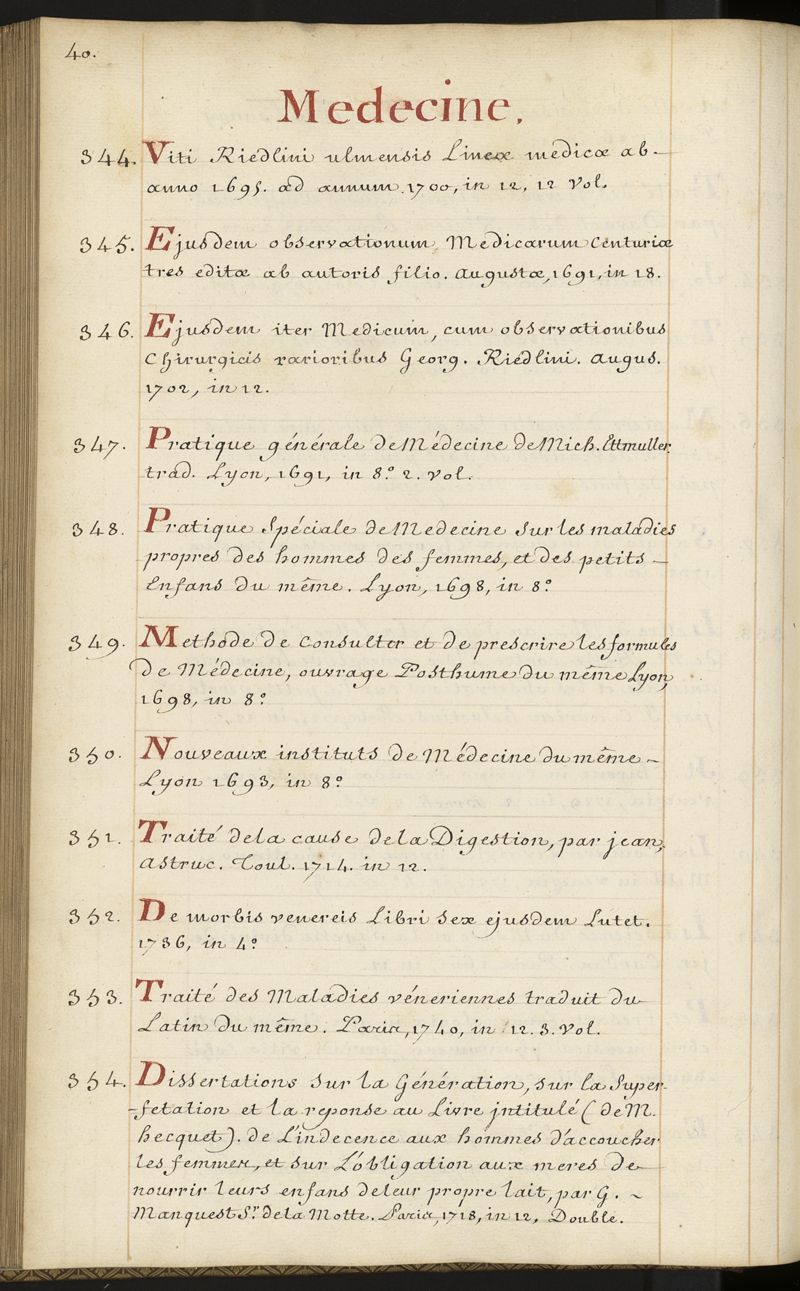 40.
Medecine.
344. Viti Riedlini ulmensis Lineæ medicæ ab-
anno 1695. ad annum 1700, in 12, 12 Vol.
345. Ejusdem observationum Medicarum Centuriæ
tres editæ ab autoris filio. Augustæ, 1691, in 18.
346. Ejusdem iter Medicum, cum observationibus
Chirurgicis rarioribus Georg. Riedlini. Augus.
1702, in 12.
347. Pratique générale de Médecine de Mich. Ettmuller,
trad. Lyon, 1691, in 8.º 2. Vol.
348. Pratique Spéciale de Medecine sur les maladies
propres des hommes des femmes, et des petits -
Enfans du même. Lyon, 1698, in 8º
349. Methode de Consulter et de prescrire les formules
de Médecine, ouvrage Posthume du même Lyon,
1698, in 8º
350. Nouveaux instituts de Médecine du même ~
Lyon 1693, in 8º
351. Traité de la cause de la Digestion, par jean,
Astruc. Toul. 1714. in 12.
352. De morbis venereis Libri sex ejusdem Lutet.
1736, in 4º
353. Traité des Maladies véneriennes traduit du
Latin du même. Paris, 1740, in 12. 3. Vol.
354. Dissertations sur la Génération, sur la Super-
-fetation et la reponse au Livre jntitulé (de M.
hecquet). de L'indecence aux hommes d'accoucher
les femmes, et sur L'obligation aux meres de
nourrir leurs enfans de leur propre lait, par G. ~
Manquest Sr. de la Motte. Paris, 1718, in 12, Double.